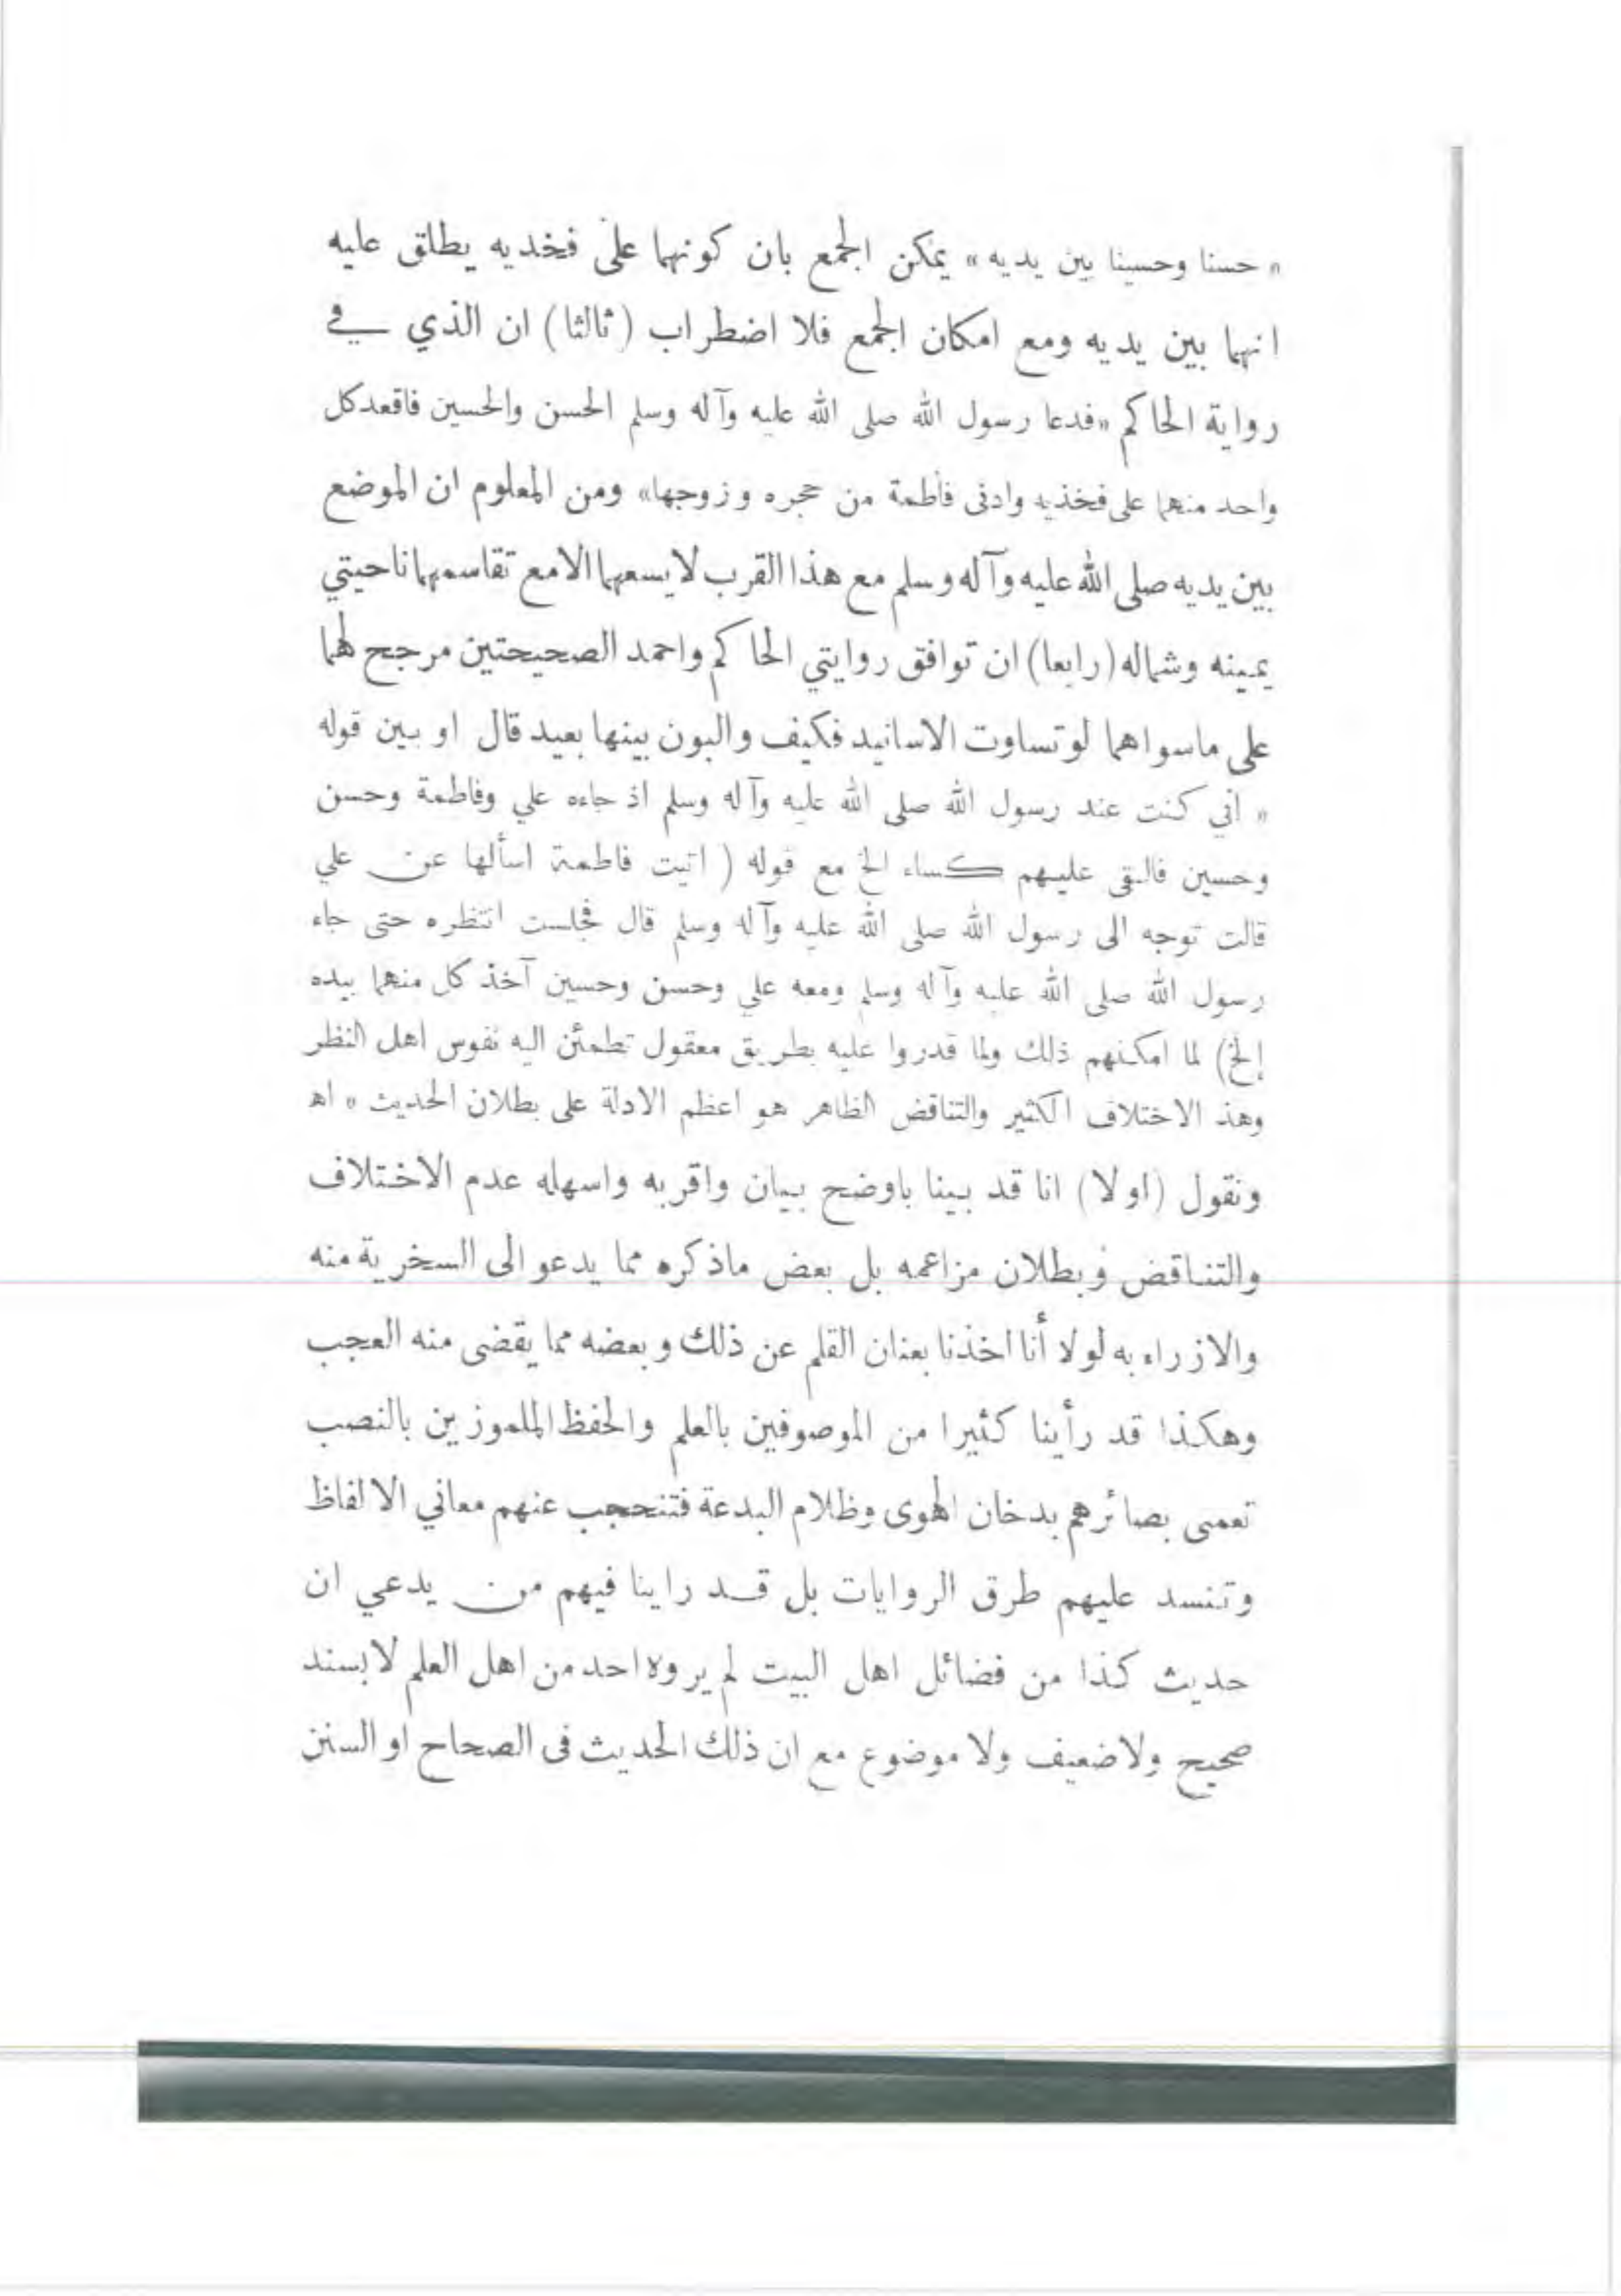 « حسنا وحسينا بين يديه » يمكن الجمع بان كونهما على فخديه يطلق عليه
انهما بين يديه ومع امكان الجمع فلا اضطراب (ثالثا) ان الذي في
رواية الحاكم «فدعا رسول الله صلى الله عليه وآله وسلم الحسن والحسين فاقعد كل
واحد منهما على فخذيه وادنى فاطمة من حجره وزوجها» ومن المعلوم ان الموضع
بين يديه صلى الله عليه وآله وسلم مع هذا القرب لا يسعهما الا مع تقاسمهما ناحيتي
يمينه وشماله (رابعا) ان توافق روايتي الحاكم واحمد الصحيحتين مرجح لهما
على ماسواهما لو تساوت الاسانيد فكيف والبون بينها بعيد قال او بين قوله
« اني كنت عند رسول الله صلى الله عليه وآله وسلم اذ جاءه علي وفاطمة وحسن
وحسين فالقى عليهم كساء الخ مع قوله ( اتيت فاطمة اسألها عن علي
قالت توجه الى رسول الله صلى الله عليه وآله وسلم قال فجلست انتظره حتى جاء
رسول الله صلى الله عليه وآله وسلم ومعه علي وحسن وحسين آخذ كل منهما بيده
إلخ) لما امكنهم ذلك ولما قدروا عليه بطريق معقول تطمئن اليه نفوس اهل النظر
وهذ الاختلاف الكثير والتناقض الظاهر هو اعظم الادلة على بطلان الحديث » اهـ
ونقول (اولا) انا قد بينا باوضح بيان واقربه واسهله عدم الاختلاف
والتناقض وبطلان مزاعمه بل بعض ماذكره مما يدعو الى السخرية منه
والازراء به لولا أنا اخذنا بعنان القلم عن ذلك وبعضه مما يقضى منه العجب
وهكذا قد رأينا كثيرا من الموصوفين بالعلم والحفظ الملموزين بالنصب
تعمى بصائرهم بدخان الهوى وظلام البدعة فتنحجب عنهم معاني الالفاظ
وتنسد عليهم طرق الروايات بل قد راينا فيهم من يدعي ان
حديث كذا من فضائل اهل البيت لم يروه احد من اهل العلم لا بسند
صحيح ولا ضعيف ولا موضوع مع ان ذلك الحديث فى الصحاح او السنن